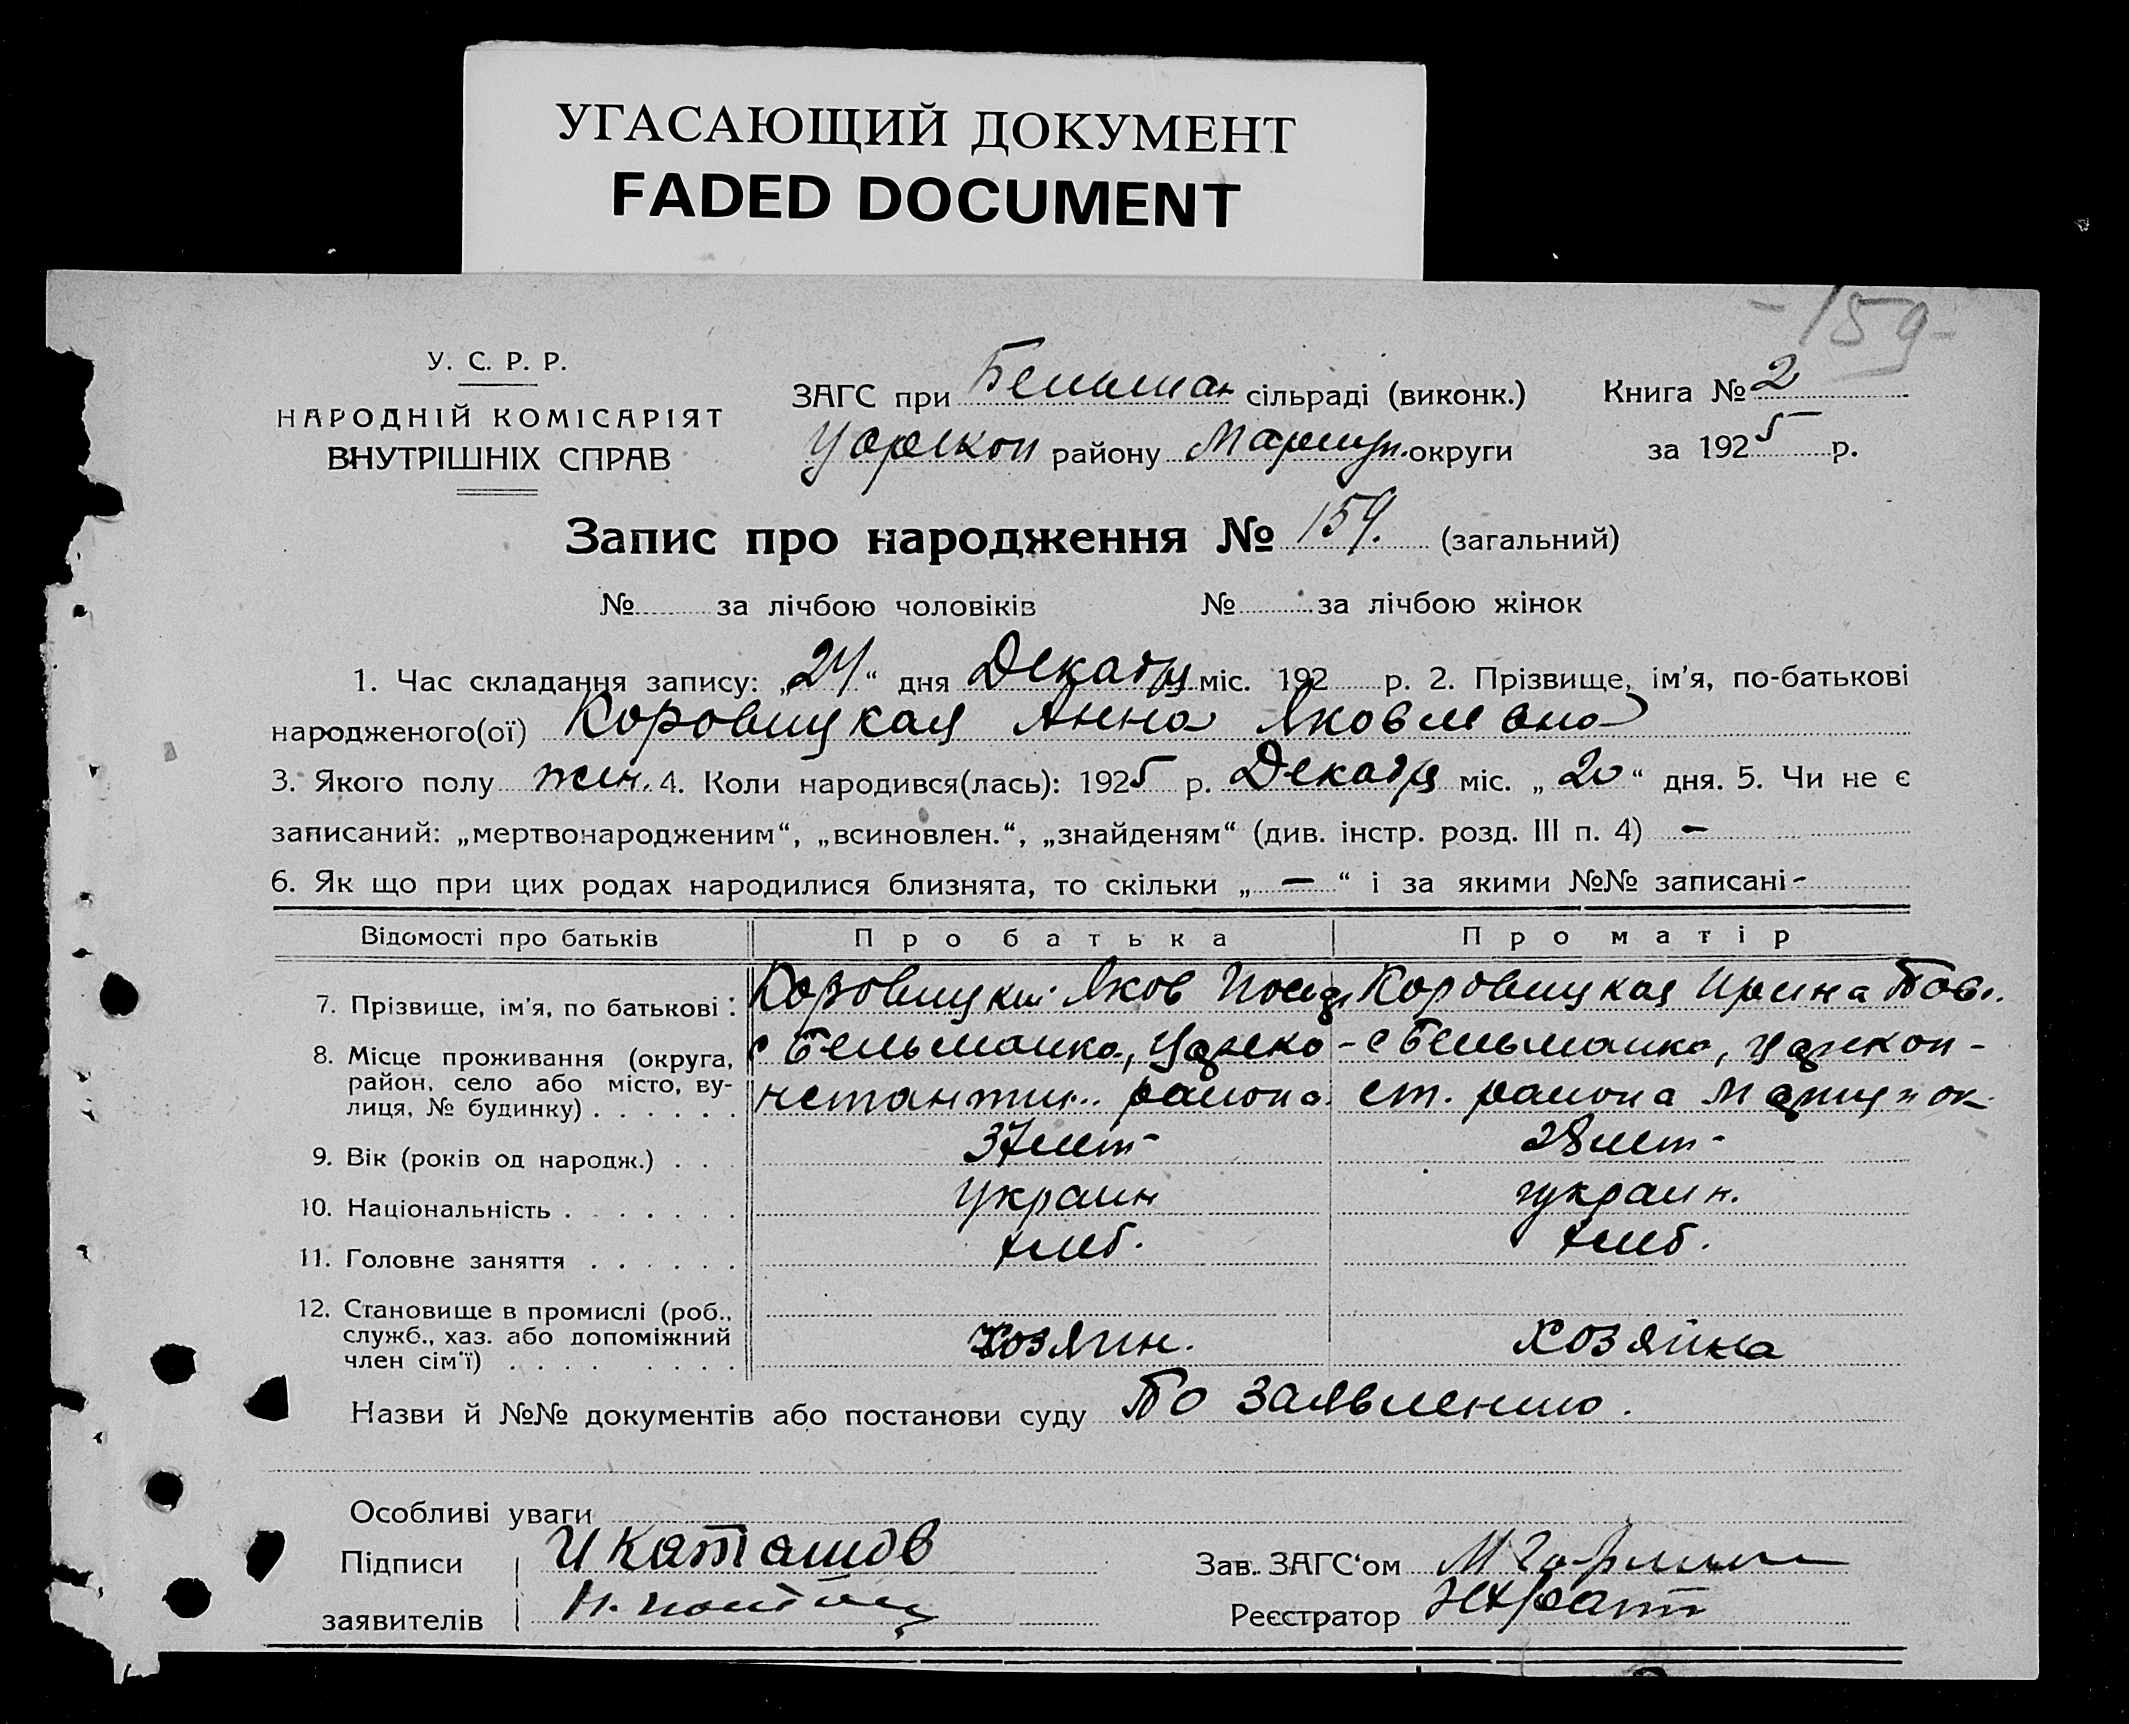 УГАСАЮЩИЙ ДОКУМЕНТ
FADED DOCUMENT
-159-
У. С. Р. Р.
НАРОДНІЙ КОМІСАРІЯТ
ВНУТРІШНІХ СПРАВ
ЗАГС при Бельман сільраді (виконк.) Книга № 2
Царекон району Мариуп. округи за 1925 р.
Запис про народження № 159. (загальний)
№ за лічбою чоловіків № за лічбою жінок
1. Час складання запису: „24“ дня Декабря міс. 192 р. 2. Прізвище, ім'я, по-батькові
народженого(ої) Коровицкая Анна Яковлевна
3. Якого полу жен. 4. Коли народився(лась): 1925 р. Декабря міс. „20“ дня. 5. Чи не є
записаний: „мертвонародженим“, „всиновлен.“, „знайденям“ (див. інстр. розд. III п. 4) —
6. Як що при цих родах народилися близнята, то скільки „—“ і за якими №№ записані -
Відомості про батьків Про батька Про матір
7. Прізвище, ім'я, по батькові: Коровицкий Яков Иосиф Коровицкая Ирина Пав.
8. Місце проживання (округа, район, село або місто, ву-лиця, № будинку) . . . . . . с Бельманка, Царско-
нстантин. района
- с Бельманка, Царекон-
ст. района Мариуп ок
9. Вік (років од народж.) . . . 37 лет - 28 лет -
10. Національність . . . . . . . Украин украин.
11. Головне заняття . . . . . . хлеб. хлеб.
12. Становище в промислі (роб.,
служб., хаз. або допоміжний
член сім'ї) . . . . . . . . . Хозяин. Хозяйка
Назви й №№ документів або постанови суду По заявлению.
Особливі уваги
Підписи И Каташов Зав. ЗАГС'ом
заявителів Реєстратор